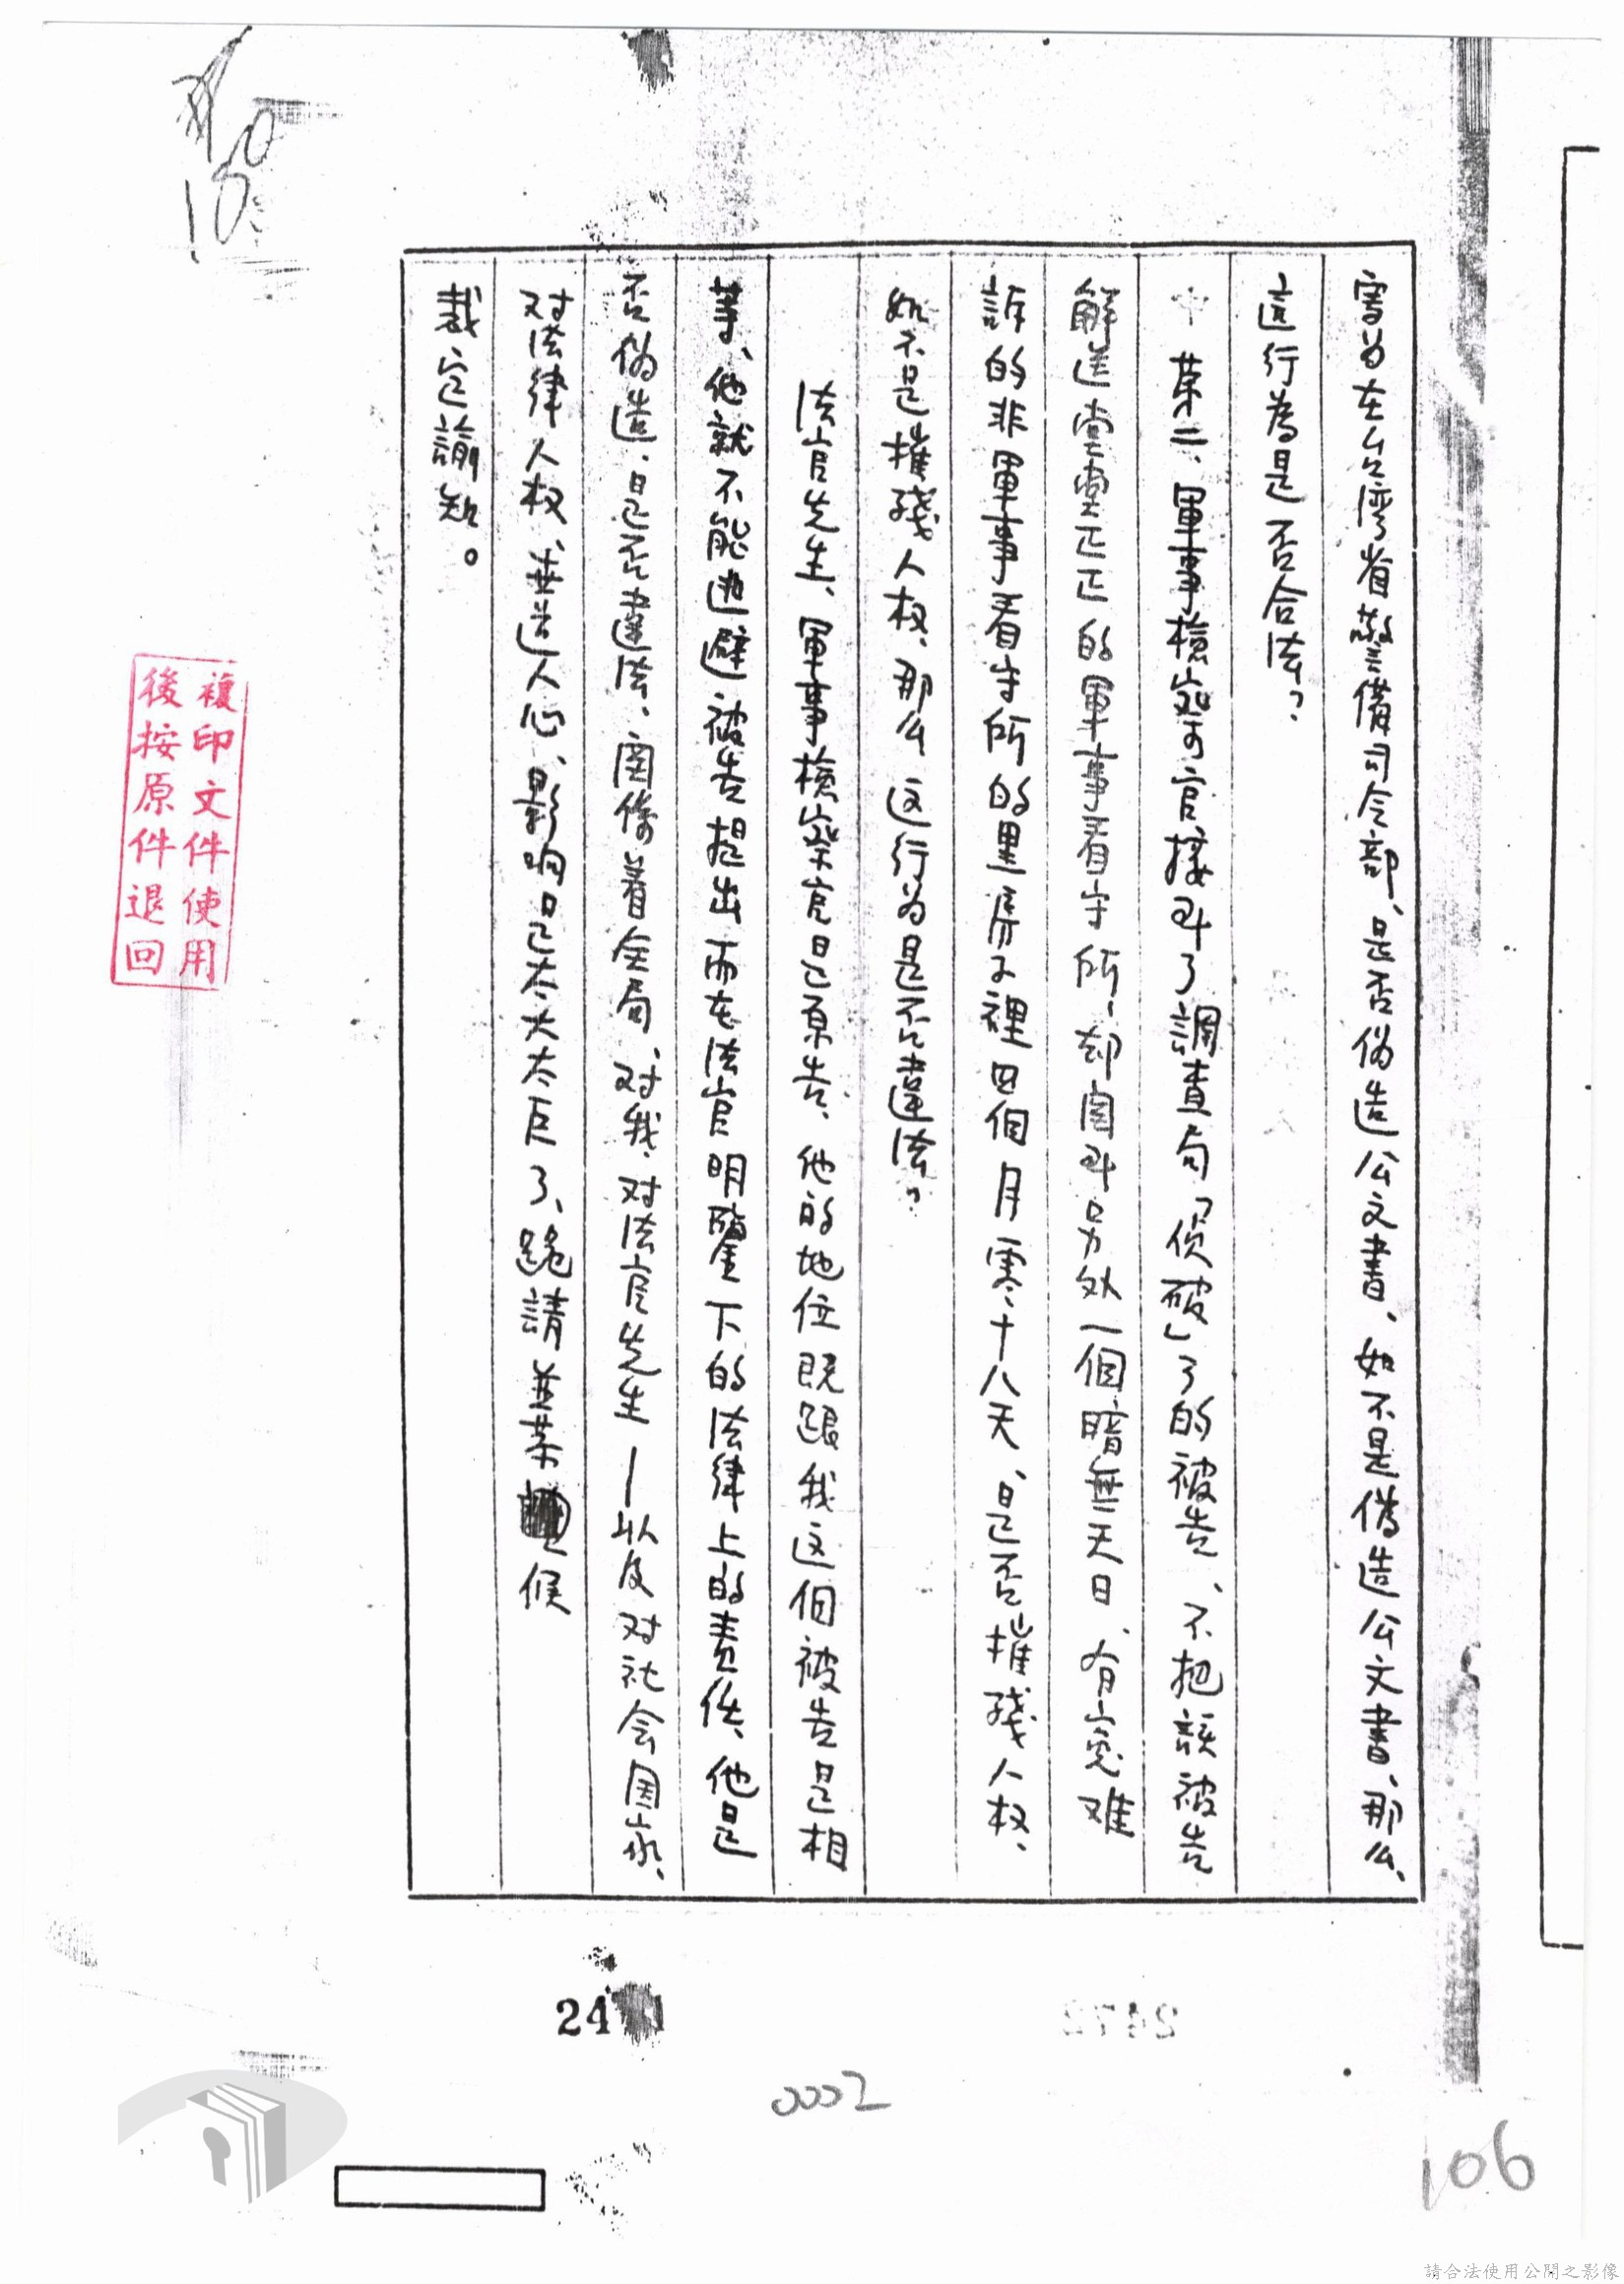 寫为在台湾省警備司令部、是否偽造公文書、如不是偽造公文書、那么、
這行為是否合法？
第二、軍事檢察官接到了調查局「偵破」了的被告、不把該被告
解送堂堂正正的軍事看守所、却関到另处一個暗無天日、有寃难
訴的非軍事看守所的黑房子裡四個月零十八天、是否摧殘人权、
如不是摧殘人权、那么这行为是否違法？
法官先生、軍事檢察官是原告、他的地位既跟我这個被告是相
等、他就不能逃避被告提出而在法官明鑒下的法律上的責任、他是
否偽造、是否違法、関係着全局、对我、对法官先生—以及对社会国家、
对法律人权、世道人心、影响是太大太巨了、跪請並恭候
裁定諭知。
複印文件使用
後按原件退回
24
2472
0002
106
請合法使用公開之影像